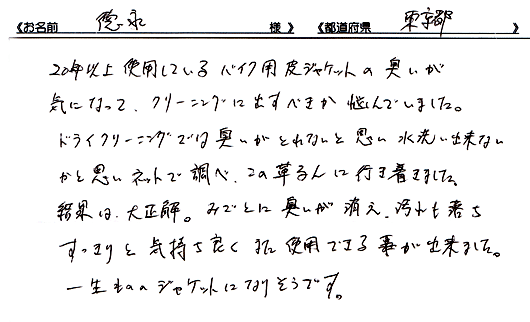 《お名前 徳永 様》 《都道府県 東京都 》
20年以上使用しているバイク用皮ジャケットの臭いが
気になって、クリーニングに出すべきか悩んでいました。
ドライクリーニングでは臭いがとれないと思い水洗い出来ない
かと思いネットで調べ、この革るんに行き着きました。
結果は、大正解。みごとに臭いが消え、汚れも落ち
すっきりと気持ち良くまた使用できる事が出来ました。
一生もののジャケットになりそうです。